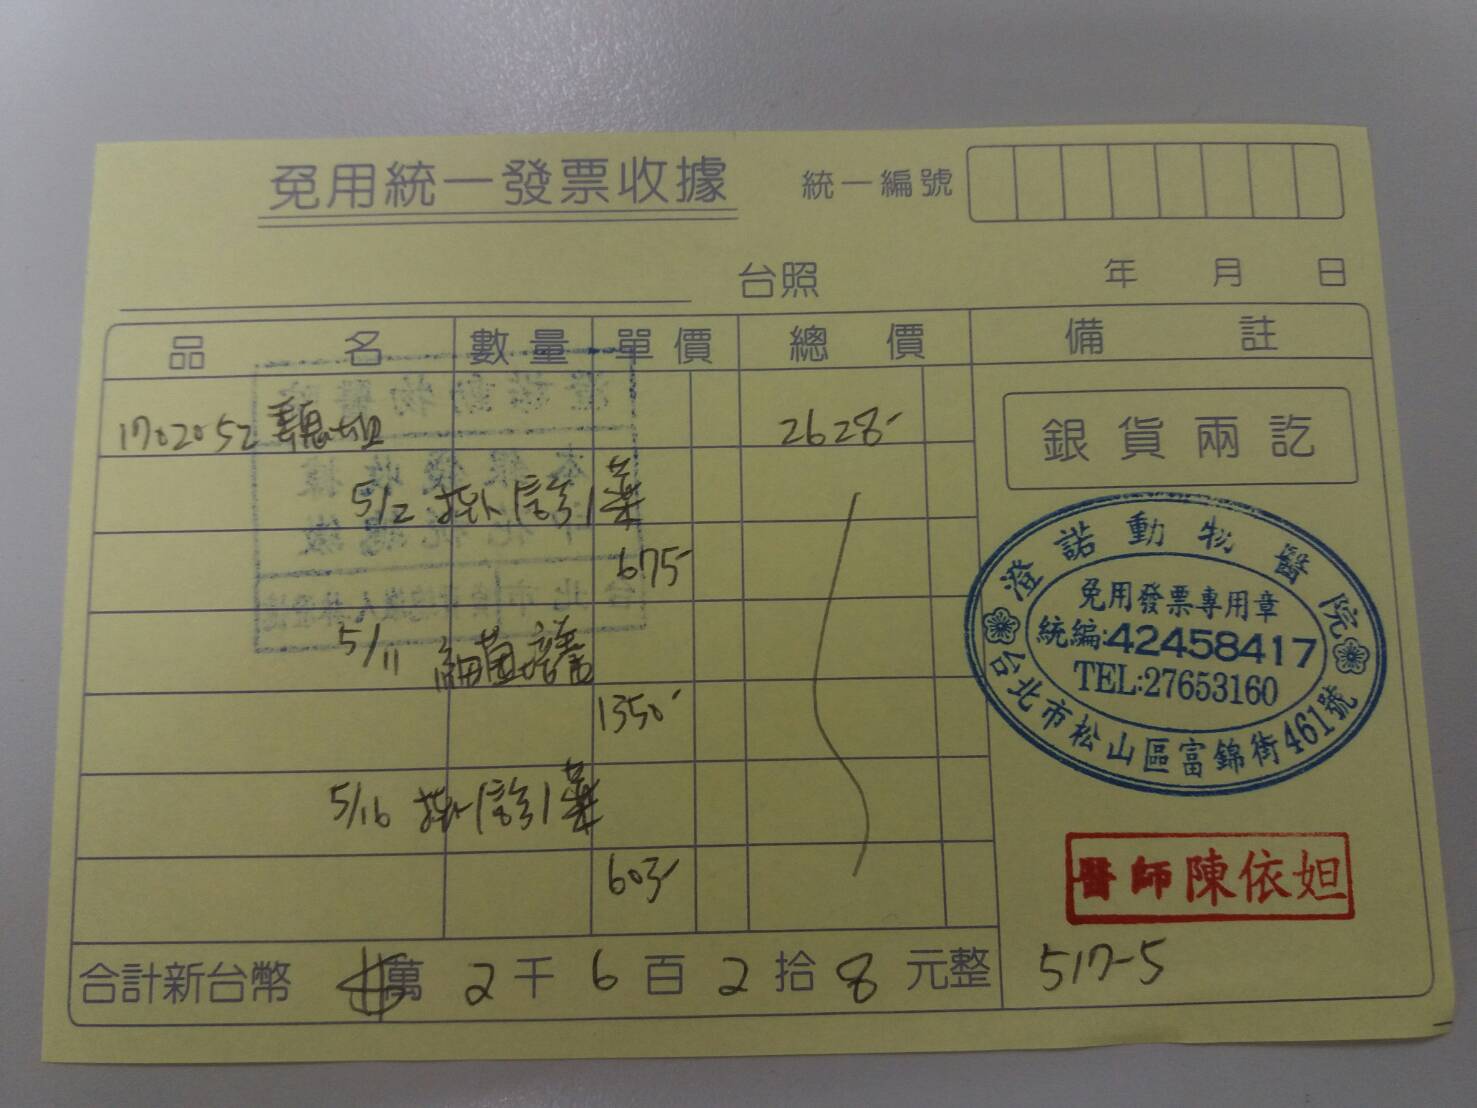 免用統一發票收據
統一編號
台照
年 月 日
品 名 數量 單價 總價 備註
1702052 2628-
銀貨兩訖
5/2 掛1診1藥
675-
5/11 細菌培養
1350-
5/16 掛1診1藥
603-
澄諾動物醫院
免用發票專用章
統編:42458417
TEL:27653160
台北市松山區富錦街461號
醫師陳依妲
合計新台幣 萬 2 千 6 百 2 拾 8 元整
517-5